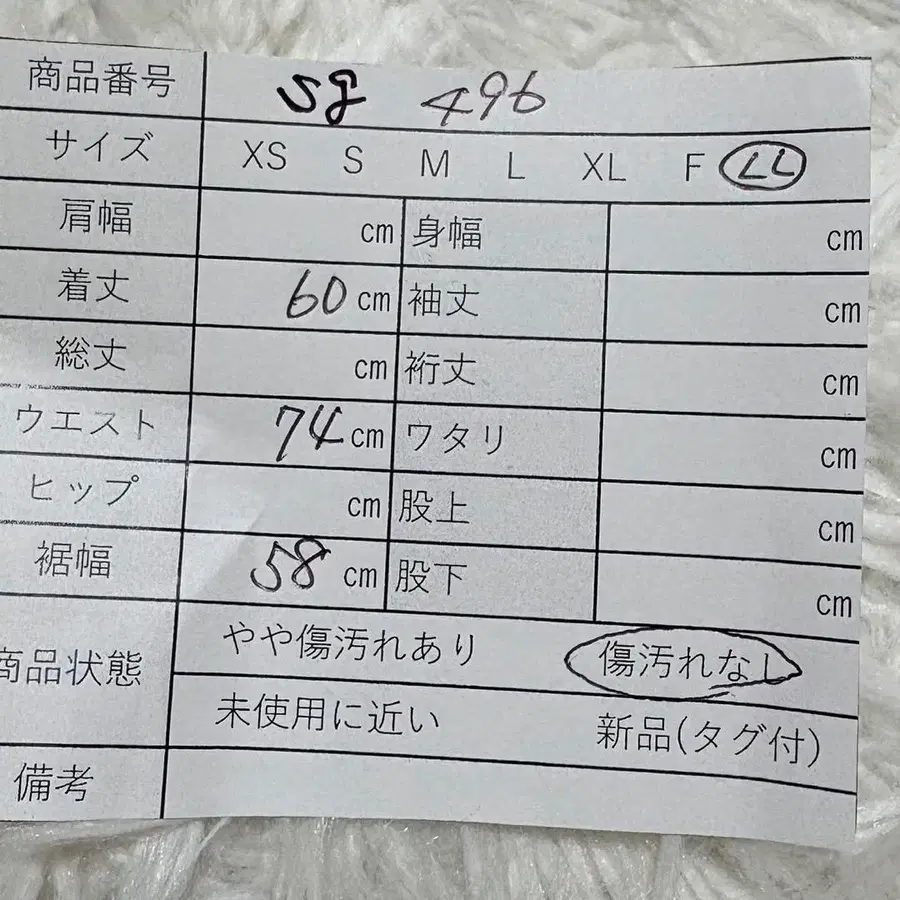 商品番号 sg 496
サイズ XS S M L XL F LL
肩幅 cm 身幅 cm
着丈 60 cm 袖丈 cm
総丈 cm 裄丈 cm
ウエスト 74 cm ワタリ cm
ヒップ cm 股上 cm
裾幅 58 cm 股下 cm
商品状態 やや傷汚れあり 傷汚れなし
未使用に近い 新品(タグ付)
備考